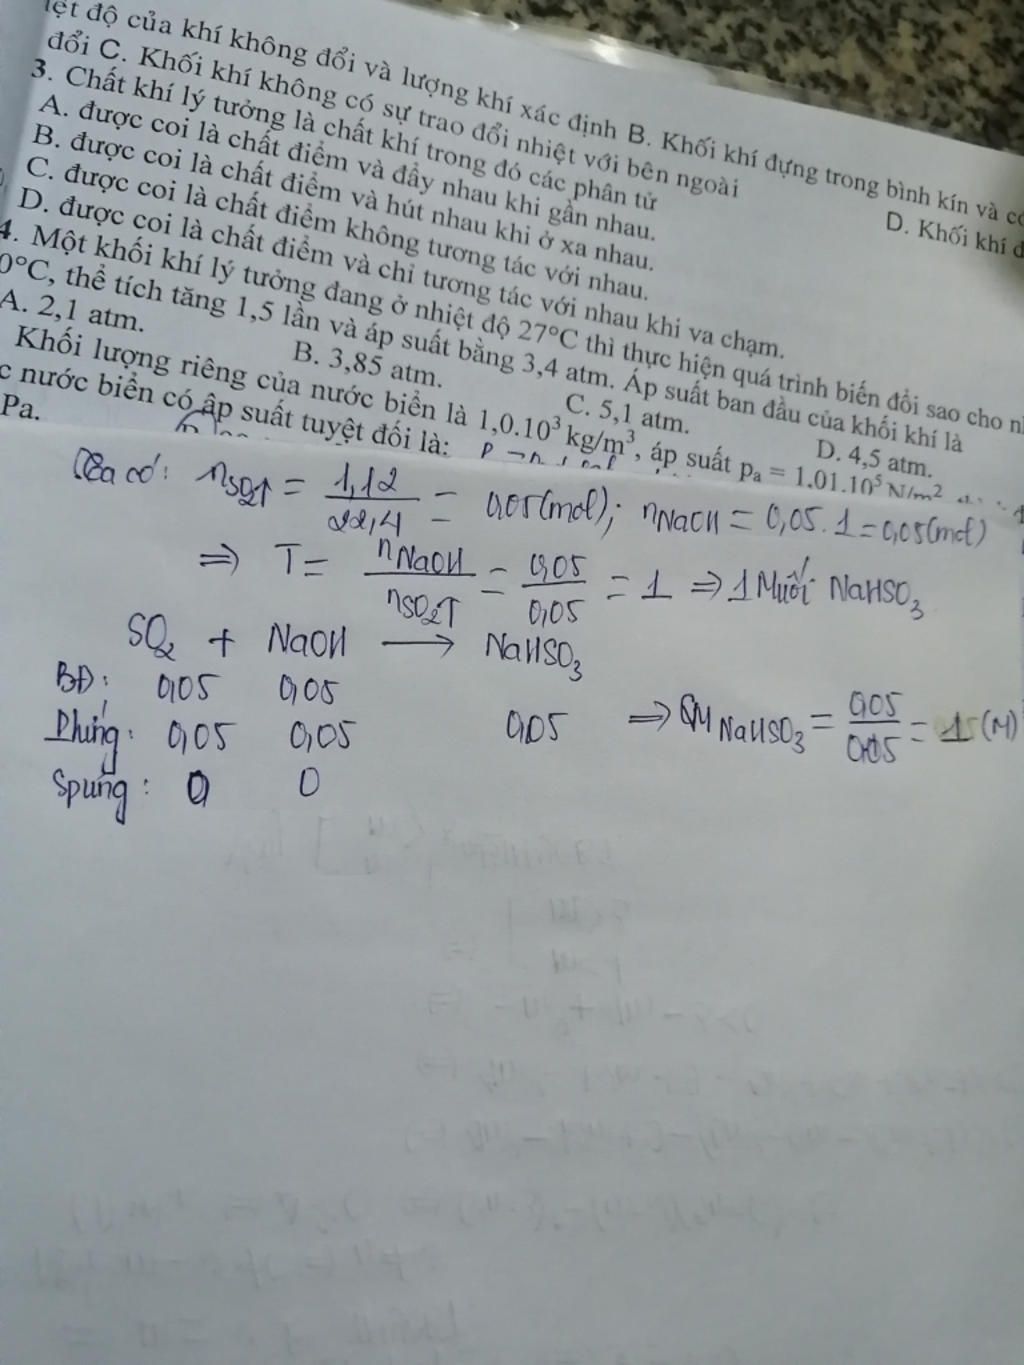 ệt độ của khí không đổi và lượng khí xác định B. Khối khí đựng trong bình kín và
đổi C. Khối khí không có sự trao đổi nhiệt với bên ngoài D. Khối khí
3. Chất khí lý tưởng là chất khí trong đó các phân tử
A. được coi là chất điểm và đẩy nhau khi gần nhau.
B. được coi là chất điểm và hút nhau khi ở xa nhau.
C. được coi là chất điểm không tương tác với nhau.
D. được coi là chất điểm và chỉ tương tác với nhau khi va chạm.
4. Một khối khí lý tưởng đang ở nhiệt độ 27°C thì thực hiện quá trình biến đổi sao cho
0°C, thể tích tăng 1,5 lần và áp suất bằng 3,4 atm. Áp suất ban đầu của khối khí là
A. 2,1 atm. B. 3,85 atm. C. 5,1 atm. D. 4,5 atm.
Khối lượng riêng của nước biển là 1,0.10³ kg/m³, áp suất pₐ = 1.01.10⁵ N/m²
c nước biển có áp suất tuyệt đối là:
Pa.
Ta có: nSO₂↑ = 1,12/22,4 = 0,05(mol); nNaOH = 0,05.1 = 0,05(mol)
⇒ T = nNaOH/nSO₂↑ = 0,05/0,05 = 1 ⇒ 1 Muối NaHSO₃
SO₂ + NaOH → NaHSO₃
BĐ: 0,05 0,05
Phứng: 0,05 0,05 0,05 ⇒ CM NaHSO₃ = 0,05/0,05 = 1 (M)
Spứng: 0 0